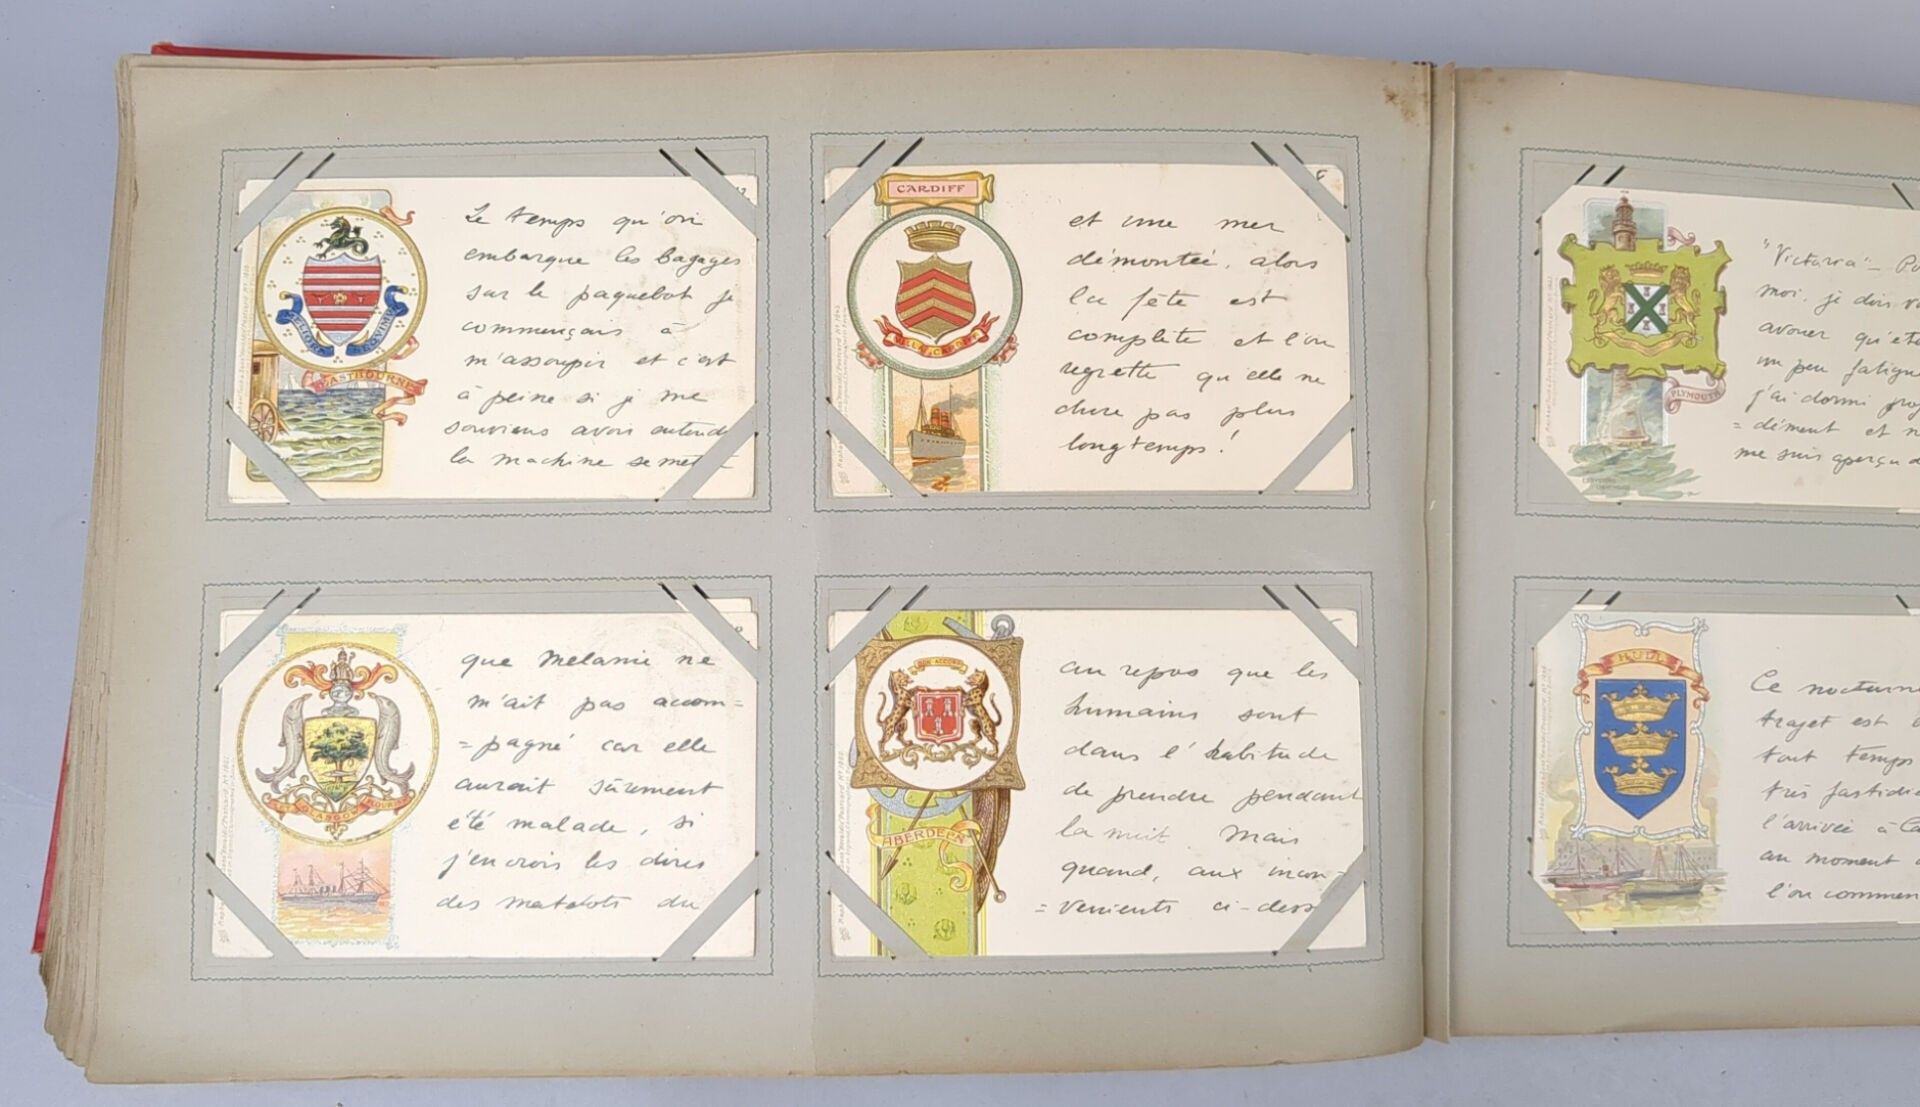 Le temps qu'on
embarque les bagages
sur le paquebot je
commençais à
m'assoupir et c'est
à peine si je me
souviens avoir entendu
la machine se mettre
MELIORA SEQUIMUR
EASTBOURNE
CARDIFF
VILLA CARDIFF
et une mer
démontée, alors
la fête est
complete et l'on
regrette qu'elle ne
dure pas plus
longtemps!
PLYMOUTH
"Victoria" -
moi, je dois
avouer qu'
un peu
j'ai dormi
= dément et
me suis aperçu
LET GLASGOW FLOURISH
que Melanie ne
m'ait pas accom=
= pagné car elle
aurait sûrement
été malade, si
j'en crois les dires
des matelots du
BON ACCORD
ABERDEEN
au repos que les
humains sont
dans l'habitude
de prendre pendant
la nuit. Mais
quand, aux incon-
= venients ci-dess
HULL
Ce nocturne
trajet est
tout temps
très
l'arrivée à
au moment
l'on